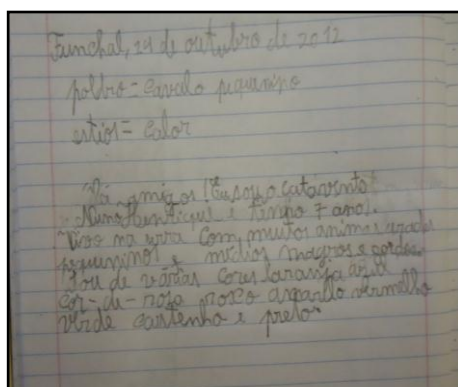 Funchal, 24 de outubro de 2012
polbro = cavalo pequenino
estios = calor
Olá amigos! Eu sou o catavento
Nuno Henrique e tenho 7 anos.
Vivo na serra com muitos animais grandes
pequeninos e médios magros e gordos.
Sou de várias cores laranja azul
cor-de-rosa roxo amarelo vermelho
verde castenho e preto.